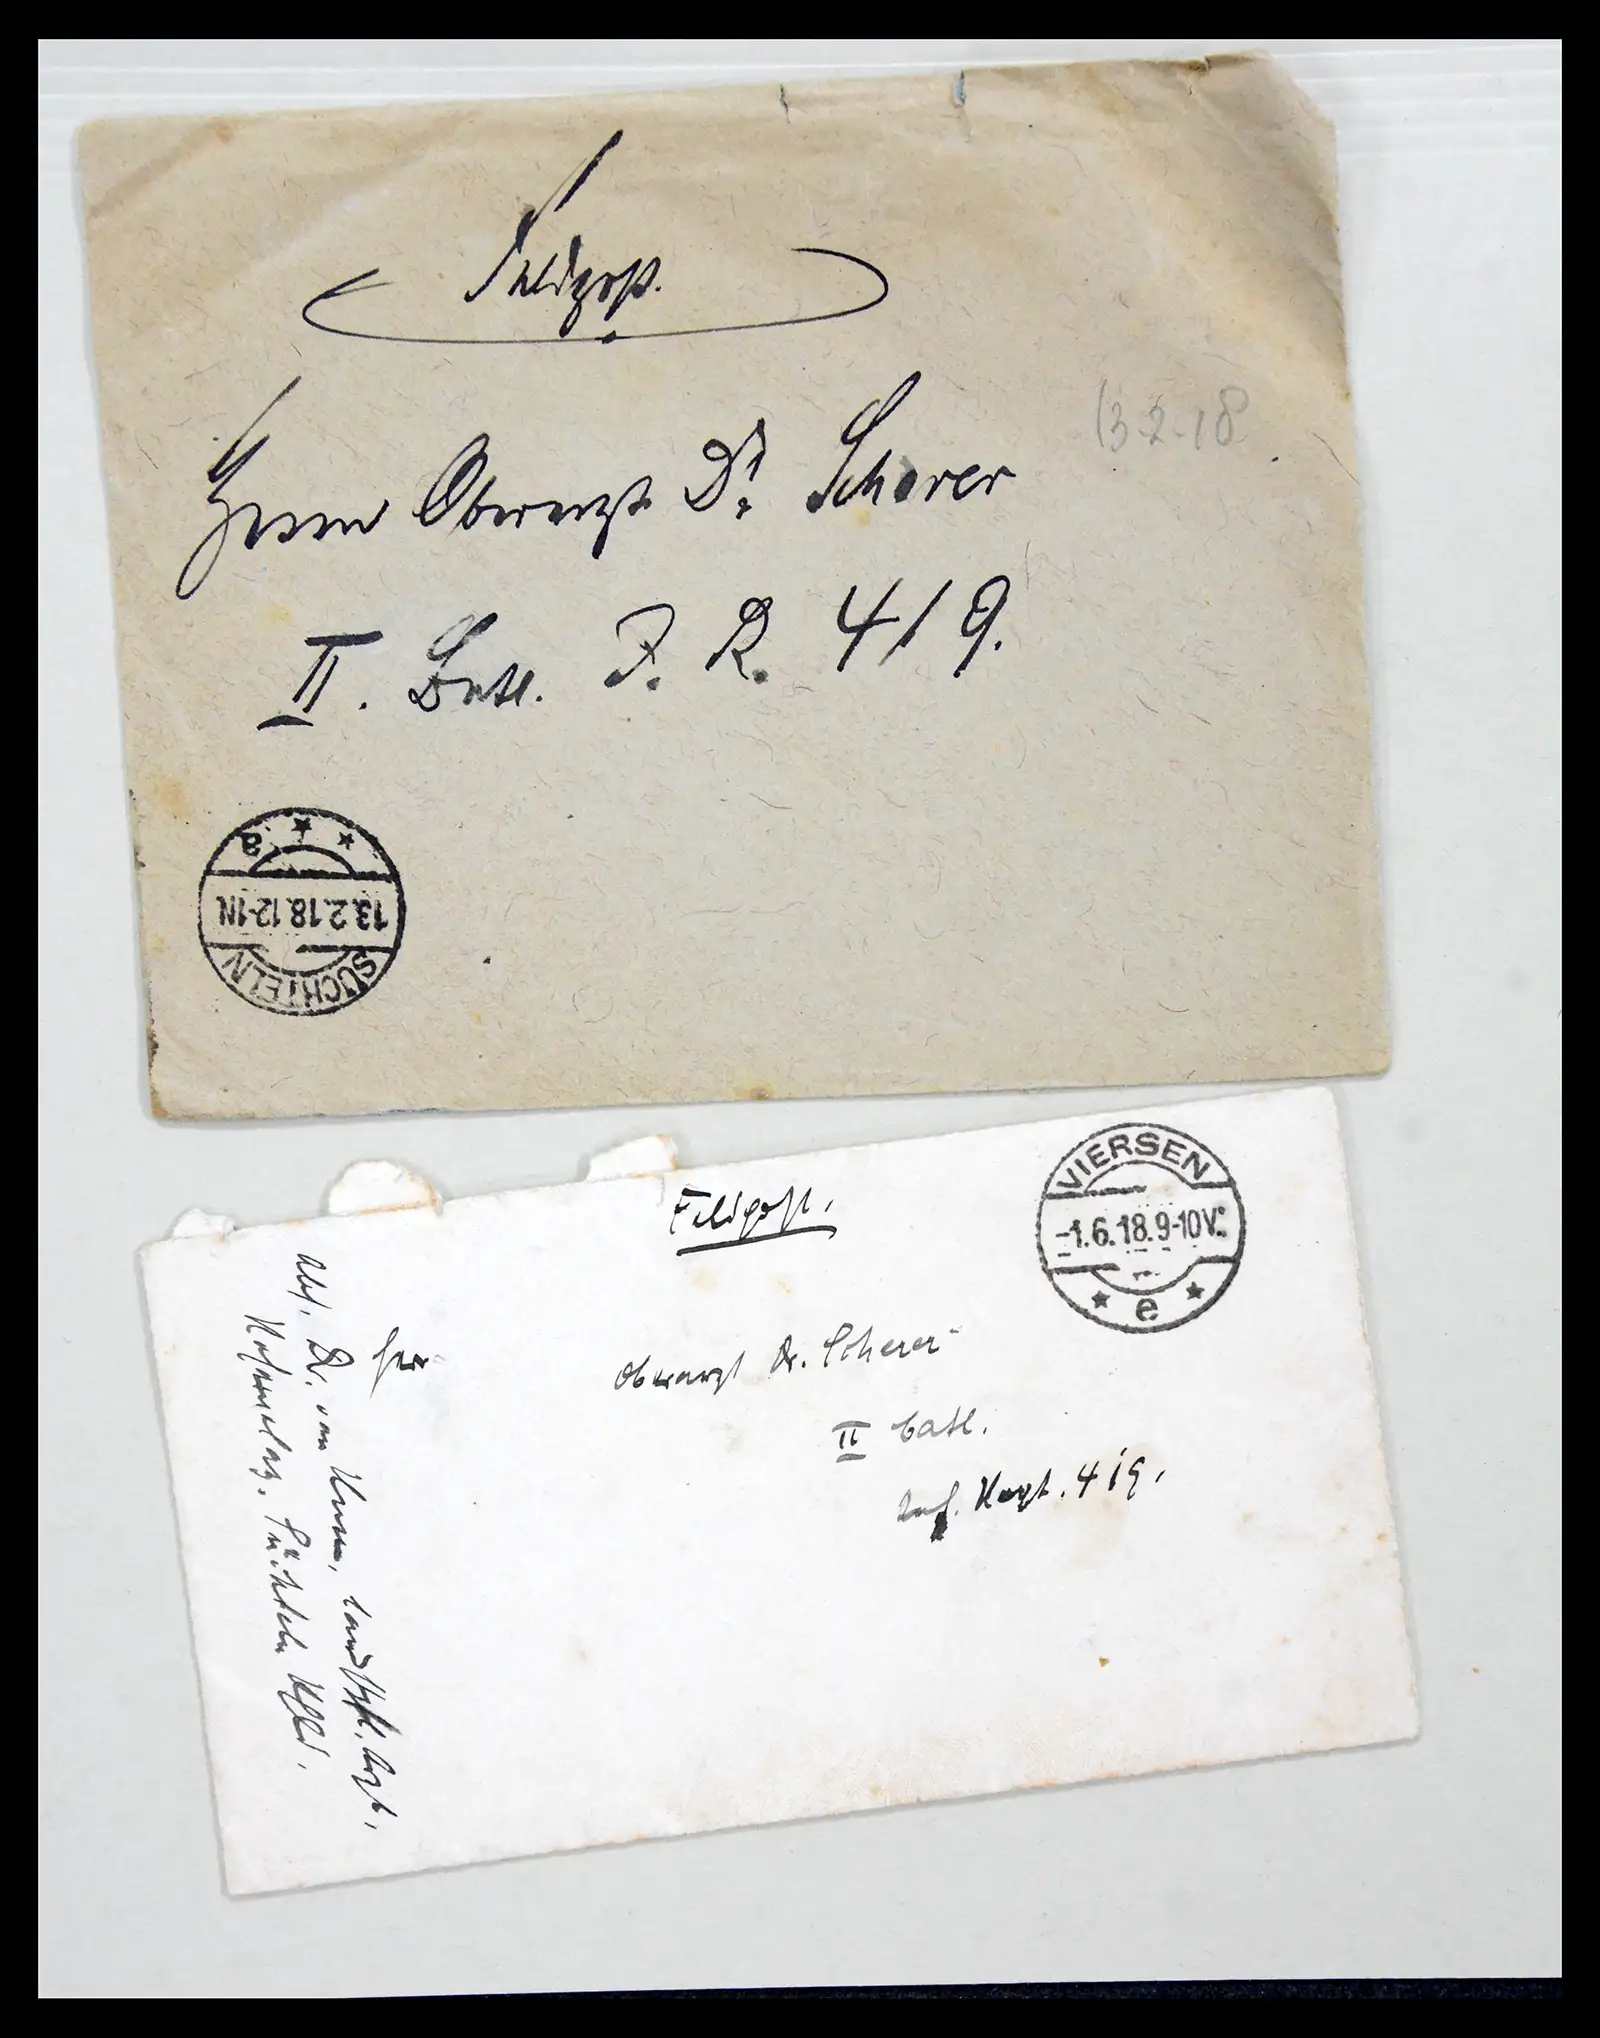 Feldpost.
13.2.18
Herrn Oberarzt Dr. Scherer
II. Batl. I. R. 419.
SÜCHTELN
13.2.18.12-1N
* * a
Feldpost.
VIERSEN
-1.6.18.9-10V.
* e *
Oberarzt Dr. Scherer
II Batl.
Inf. Regt. 419.
Abs. Dr. von, Landstpfl. Arzt,
Süchteln Rhld.